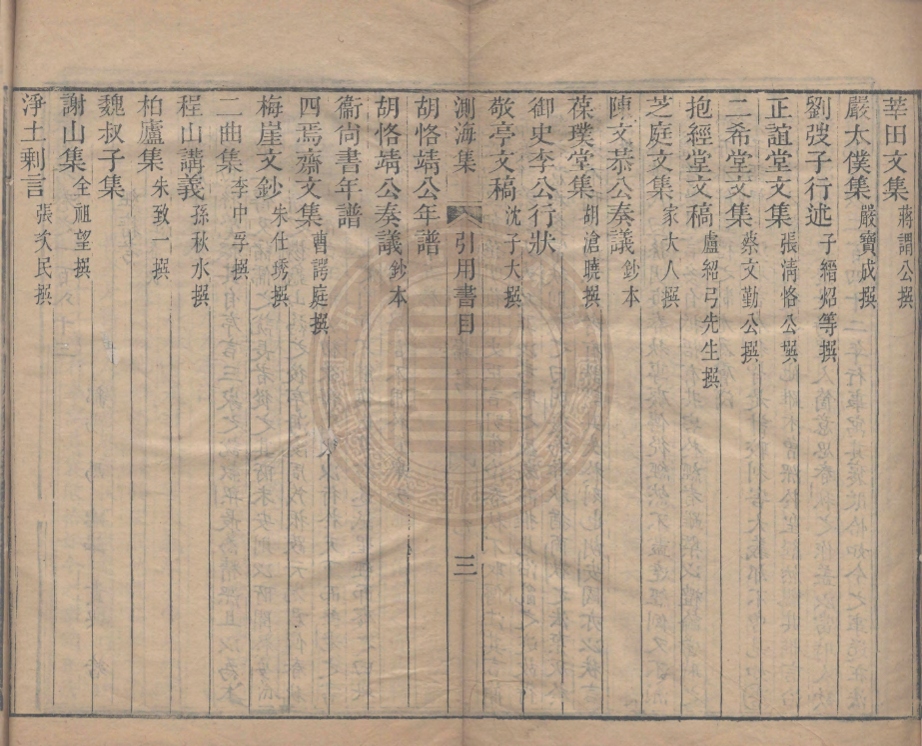 莘田文集 蔣謂公撰
嚴太僕集 嚴寶成撰
劉弢子行述 子縉炤等撰
正誼堂文集 張清恪公撰
二希堂文集 蔡文勤公撰
抱經堂文稿 盧紹弓先生撰
芝庭文集 家大人撰
陳文恭公奏議 鈔本
葆璞堂集 胡滄曉撰
御史李公行狀
敬亭文稿 沈子大撰
測海集 引用書目 三
胡恪靖公年譜
胡恪靖公奏議 鈔本
衞尙書年譜
四焉齋文集 曹諤庭撰
梅崖文鈔 朱仕琇撰
二曲集 李中孚撰
程山講義 孫秋水撰
柏廬集 朱致一撰
魏叔子集
謝山集 全祖望撰
淨土剩言 張民撰